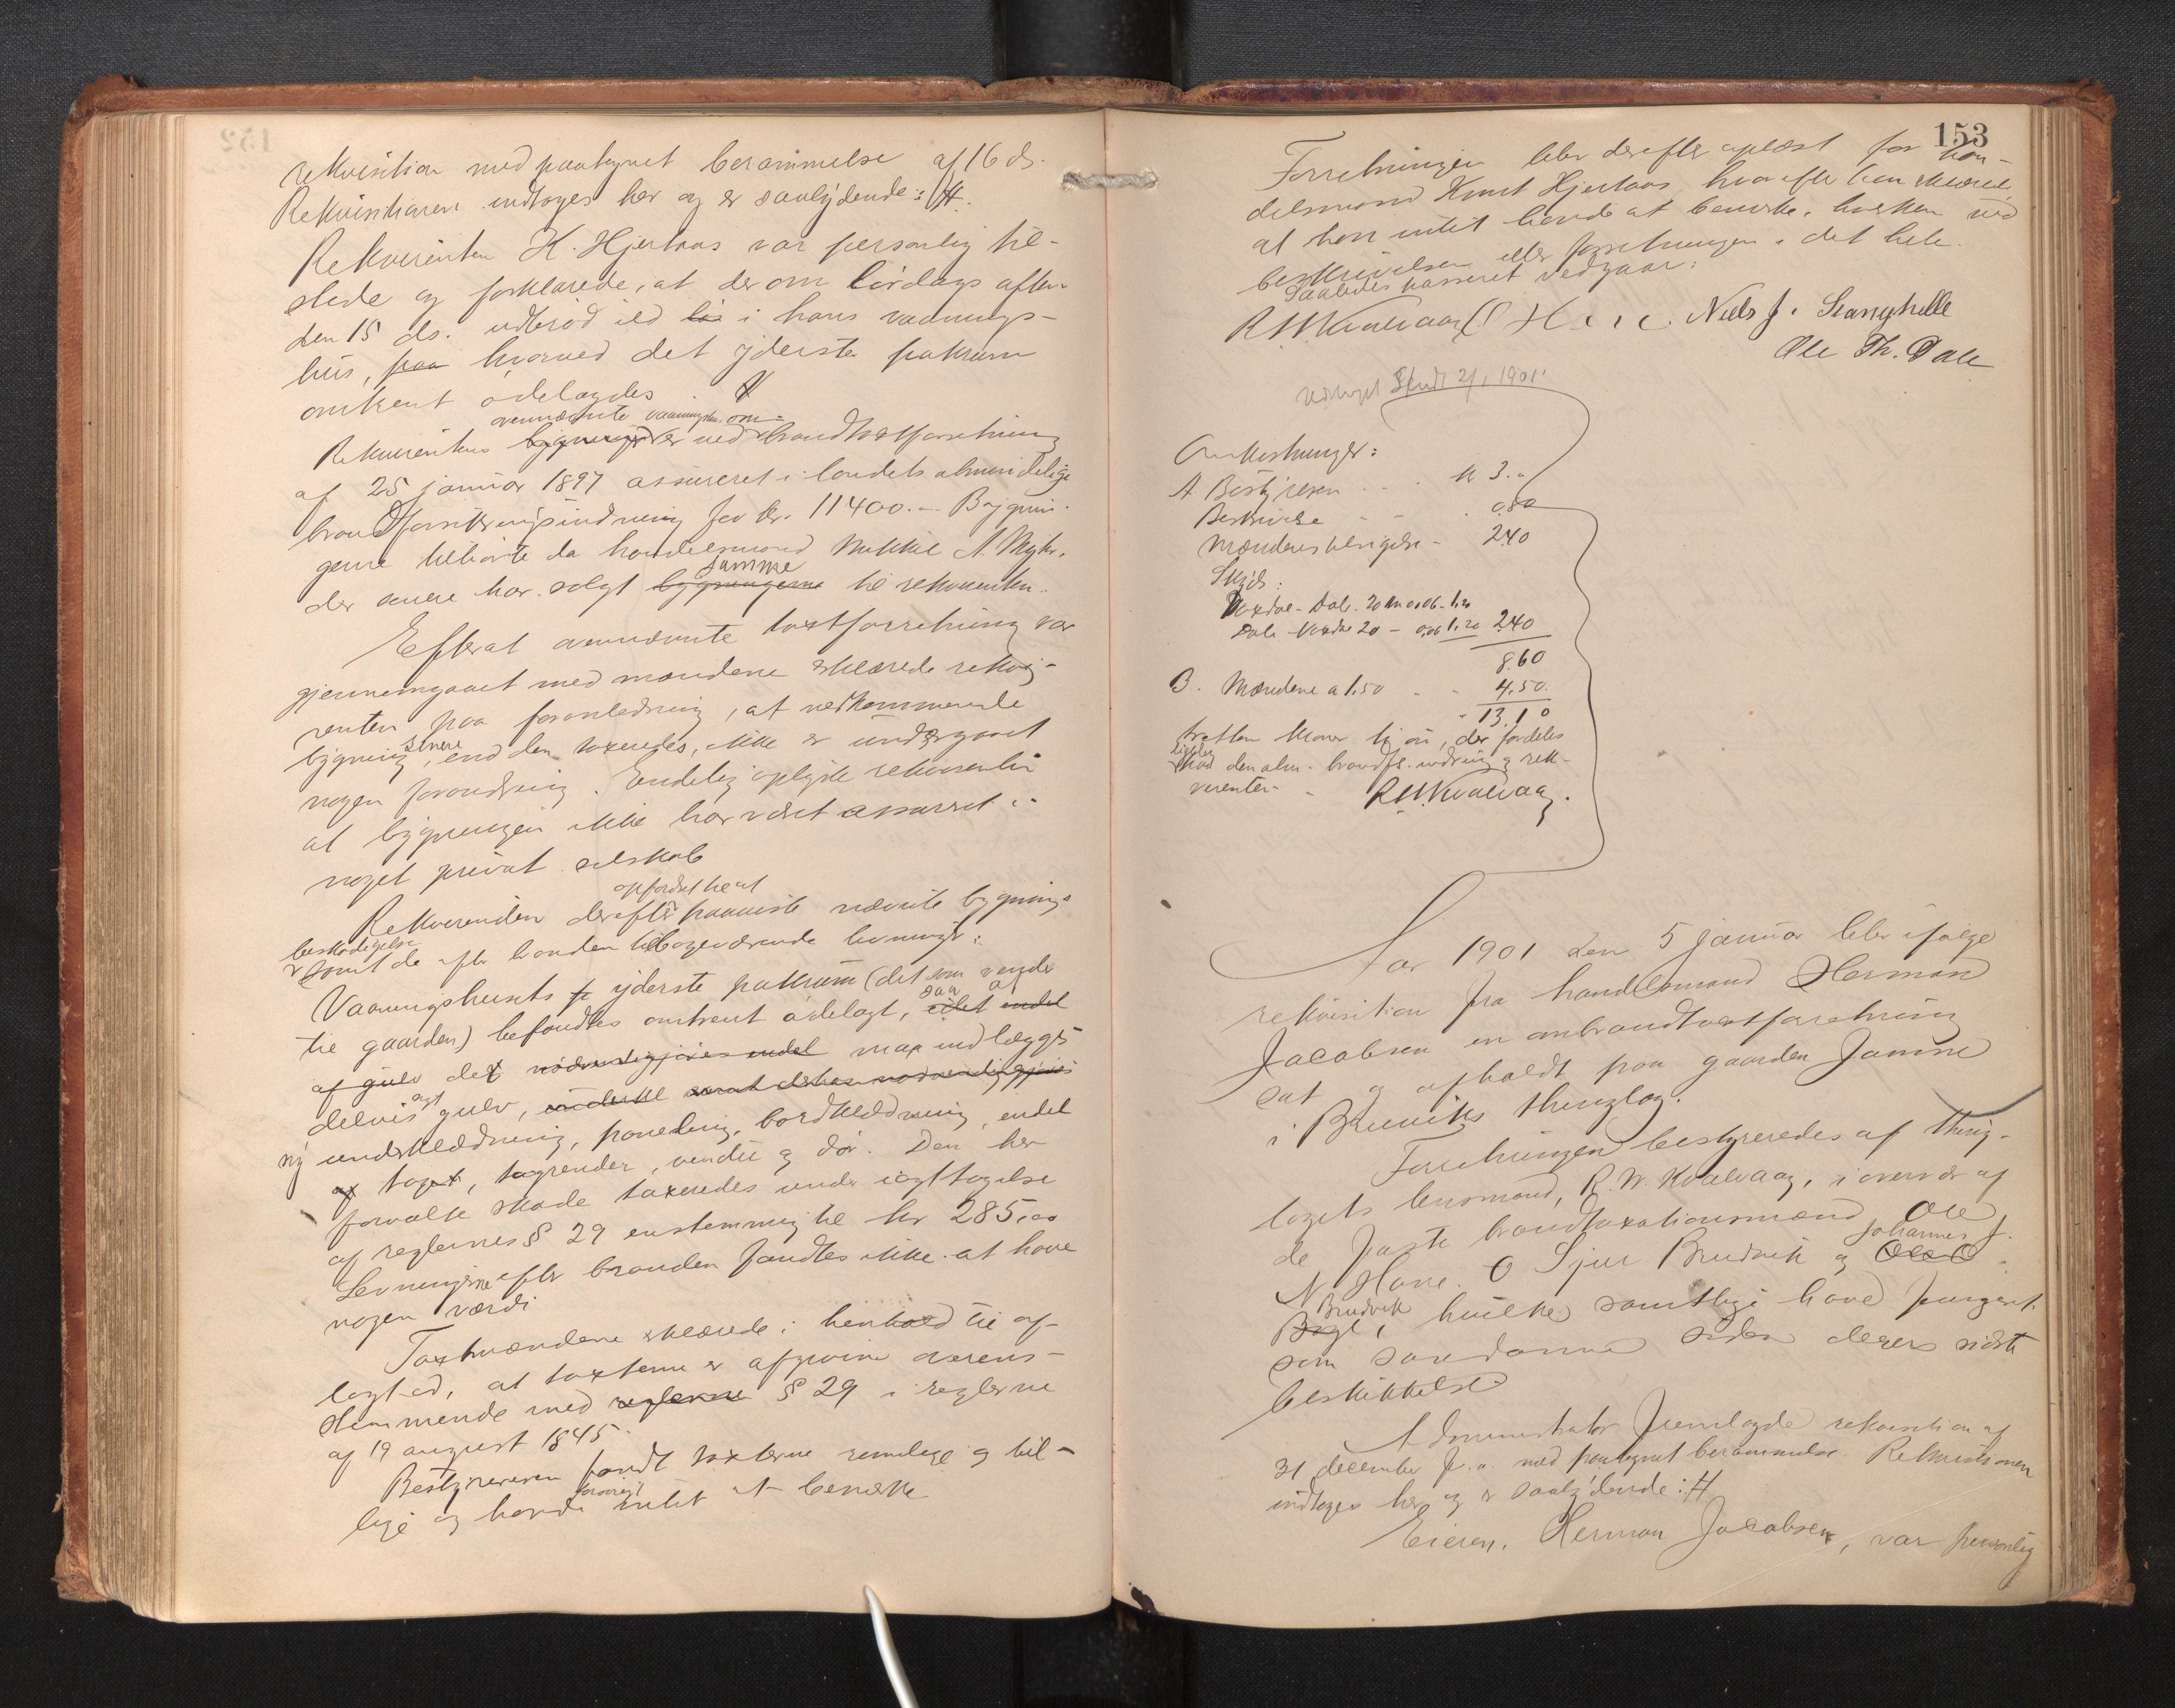 rekvisition med paategnet berammelse af 16 ds.
Rekvisitionen indtages her og er saalydende: #.
Rekvirenten K. Hjertaas var personlig til-
stede og forklarede, at der om lördags aften
den 15 ds. udbröd ild i hans vaanings-
hus, paa hvorved det yderste pakrum
omtrent ödelagdes
ovennævnte vaaningshus
Rekvirentens bygninger er ved brandtaxtforretning
af 25 januar 1897 assureret i landets almindelige
brandforsikringsindretning for kr. 11400.- Bygnin-
gerne tilhörte da handelsmand Mikkel A. Myhr,
samme
der senere har solgt bygningerne til rekvirenten.
Efterat ovennævnte taxtforretning var
gjennemgaaet med mændene erklærede rekvi-
renten paa foranledning, at vedkommende
senere
bygning, end den taxeredes, ikke er undergaaet
nogen forandring. Endelig oplyste rekvirenten
at bygningen ikke har været assureret i
noget privat selskab
opfordret til at
Rekvirenten derefter paaviste nævnte bygnings
beskadigelse
samt de efter branden tilbageværende levninger:
Vaaningshusets yderste pakrum (det som vender
til gaarden) befandtes omtrent ödelagt, saa at endel
af gulv det nödvendiggjöres endel maa indlægges
delvis nyt gulv, samt
ny underklædning, paneling, bordklædning, endel
af taget, tagrender, vindu og dör. Den her
forvoldte skade taxeredes under iagttagelse
af reglernes § 29 enstemmig til kr 285,00
Levningerne efter branden fandtes ikke at have
nogen værdi
Taxtmændene erklærede i henhold til af-
lagt ed, at taxterne er afgivne overens-
stemmende med reglerne § 29 i reglerne
af 19 august 1845.
Bestyreren fandt taxterne rimelige og bil-
forövrigt
lige og havde intet at bemærke
153
Forretningen blev derefter oplæst for han-
delsmand Knut Hjertaas, hvorefter han erklærede
at han intet havde at bemærke, hverken ved
beskrivelsen eller forretningen i det hele.
Saaledes passeret vedgaar:
R.W. Kvalvaag Niels J. Stanghelle
Ole Th. Dale
Udtaget 2/1 1901.
Omkostninger:
A Bestyreren . . . kr 3.-
Beskrivelse - - 0,80
Mændenes tilsigelse - 2.40
Skyds:
Vaxdal - Dale 20 km a 06 - 1.20
Dale - Vaxdal 20 - 0,06 1,20 2.40
8.60
B. Mændene a 1.50 - - 4.50.
- 13.10
tretten kroner ti öre, der fordeles
ligeler
mod den alm. brandfs. indretning og rek-
virenten - R.W. Kvalvaag.
Aar 1901 den 5 januar blev ifölge
rekvisition fra handelsmand Herman
Jacobsen en ombrandtaxtforretning
sat og afholdt paa gaarden Jamne
i Bruviks thinglag.
Forretningen bestyreredes af thing-
lagets lensmand, R. W. Kvalvaag, i overvær af
de faste brandtaxationsmænd Ole
Johannes J.
N. Horn. O Sjur Bruvik og Ole O.
Bruvik
hvilke samtlige have fungeret
som saadanne siden deres sidste
beskikkelse
Administrator fremlagde rekvisition af
31 december f. a. med paategnet berammelse. Rekvisitionen
indtages her og er saalydende: #
Eieren, Herman Jacobsen, var personlig